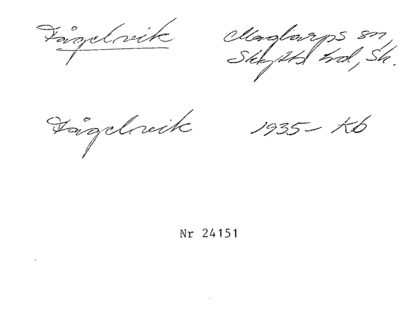 Fågelvik Maglarps sn,
Skytts hd, Sk.
Fågelvik 1935- Kb
Nr 24151